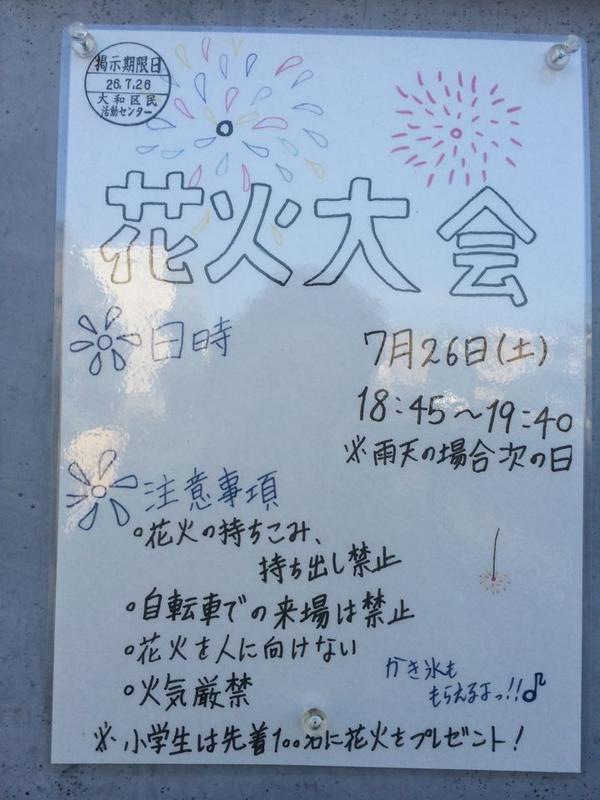 掲示期限日
26.7.26
大和区民
活動センター
花火大会
日時
7月26日(土)
18:45〜19:40
※雨天の場合次の日
注意事項
○花火の持ちこみ、
持ち出し禁止
○自転車での来場は禁止
○花火を人に向けない
○火気厳禁
かき氷も
もらえるよっ!!♪
※小学生は先着100名に花火をプレゼント!